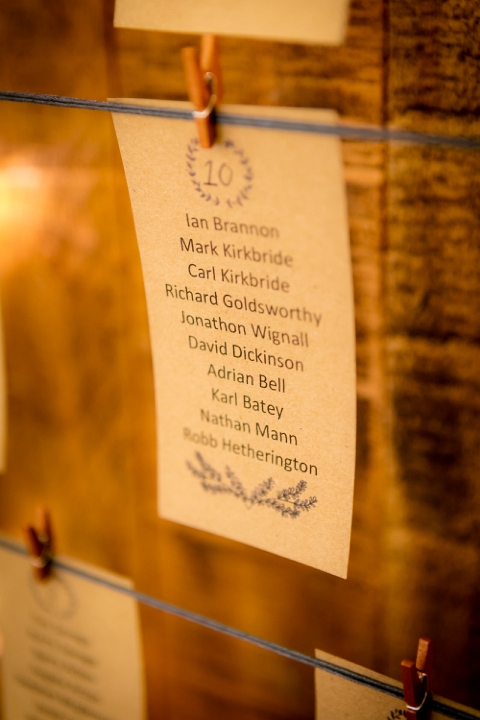 10
Ian Brannon
Mark Kirkbride
Carl Kirkbride
Richard Goldsworthy
Jonathon Wignall
David Dickinson
Adrian Bell
Karl Batey
Nathan Mann
Robb Hetherington